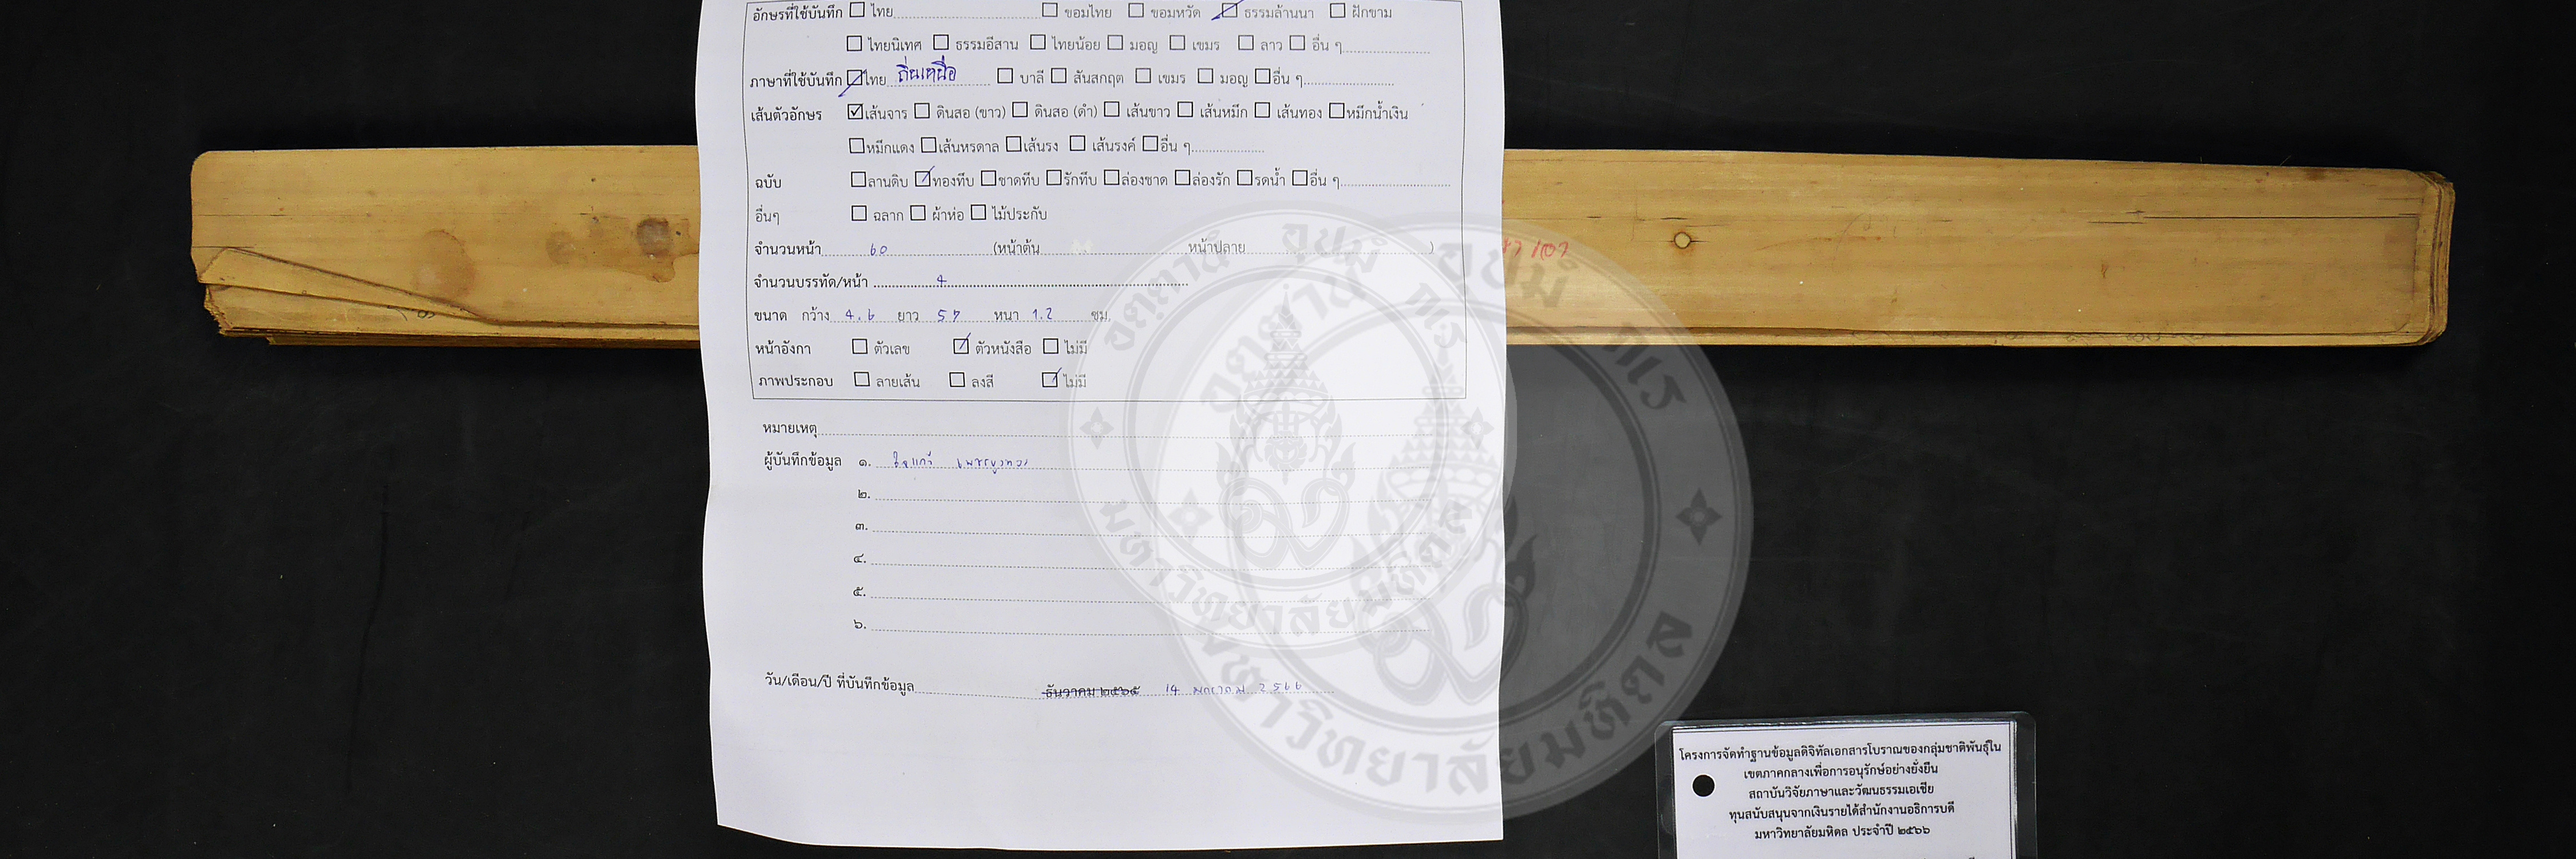 อักษรที่ใช้บันทึก ☐ ไทย ☐ ขอมไทย ☐ ขอมหวัด ☑ ธรรมล้านนา ☐ ฝักขาม
☐ ไทยนิเทศ ☐ ธรรมอีสาน ☐ ไทยน้อย ☐ มอญ ☐ เขมร ☐ ลาว ☐ อื่น ๆ
ภาษาที่ใช้บันทึก ☑ ไทย ถิ่นเหนือ ☐ บาลี ☐ สันสกฤต ☐ เขมร ☐ มอญ ☐ อื่น ๆ
เส้นตัวอักษร ☑ เส้นจาร ☐ ดินสอ (ขาว) ☐ ดินสอ (ดำ) ☐ เส้นขาว ☐ เส้นหมึก ☐ เส้นทอง ☐ หมึกน้ำเงิน
☐ หมึกแดง ☐ เส้นหรดาล ☐ เส้นรง ☐ เส้นรงค์ ☐ อื่น ๆ
ฉบับ ☐ ลานดิบ ☑ ทองทึบ ☐ ชาดทึบ ☐ รักทึบ ☐ ล่องชาด ☐ ล่องรัก ☐ รดน้ำ ☐ อื่น ๆ
อื่นๆ ☐ ฉลาก ☐ ผ้าห่อ ☐ ไม้ประกับ
จำนวนหน้า 60 (หน้าต้น หน้าปลาย )
จำนวนบรรทัด/หน้า 4
ขนาด กว้าง 4.6 ยาว 57 หนา 1.2 ซม.
หน้าอังกา ☐ ตัวเลข ☑ ตัวหนังสือ ☐ ไม่มี
ภาพประกอบ ☐ ลายเส้น ☐ ลงสี ☑ ไม่มี
หมายเหตุ
ผู้บันทึกข้อมูล ๑.
๒.
๓.
๔.
๕.
๖.
วัน/เดือน/ปี ที่บันทึกข้อมูล ธันวาคม ๒๕๖๕ 14 มกราคม 2566
มหาวิทยาลัยมหิดล
โครงการจัดทำฐานข้อมูลดิจิทัลเอกสารโบราณของกลุ่มชาติพันธุ์ใน
เขตภาคกลางเพื่อการอนุรักษ์อย่างยั่งยืน
สถาบันวิจัยภาษาและวัฒนธรรมเอเชีย
ทุนสนับสนุนจากเงินรายได้สำนักงานอธิการบดี
มหาวิทยาลัยมหิดล ประจำปี ๒๕๖๖